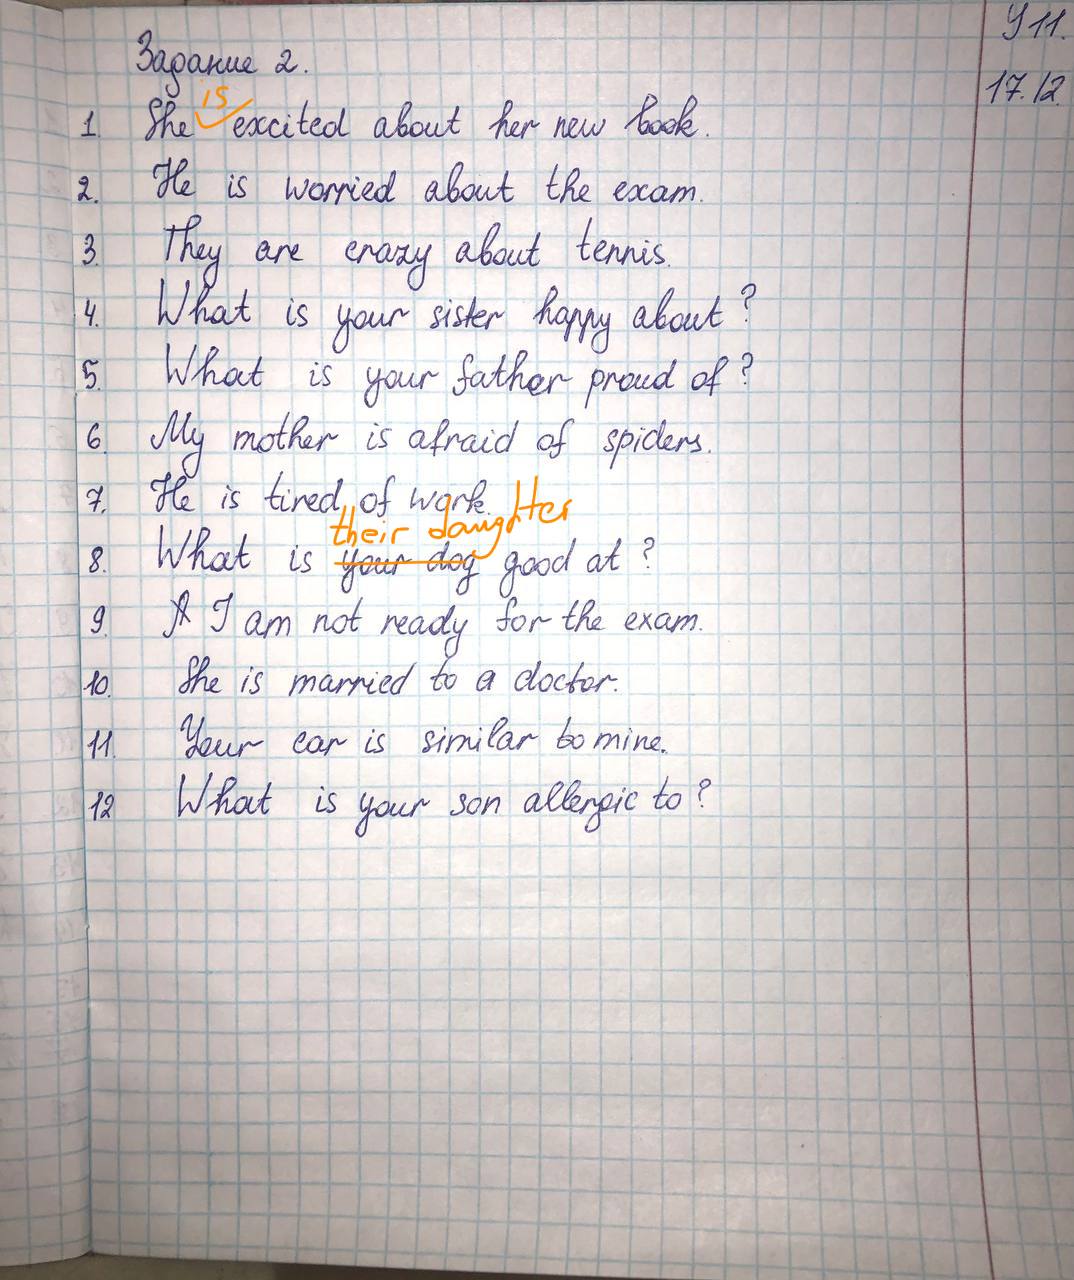 У 11.
17.12
Задание 2.
is
1. She excited about her new book.
2. He is worried about the exam.
3. They are crazy about tennis.
4. What is your sister happy about?
5. What is your father proud of?
6. My mother is afraid of spiders.
7. He is tired of work.
their daughter
8. What is your dog good at?
9. A I am not ready for the exam.
10. She is married to a doctor.
11. Your car is similar to mine.
12 What is your son allergic to?